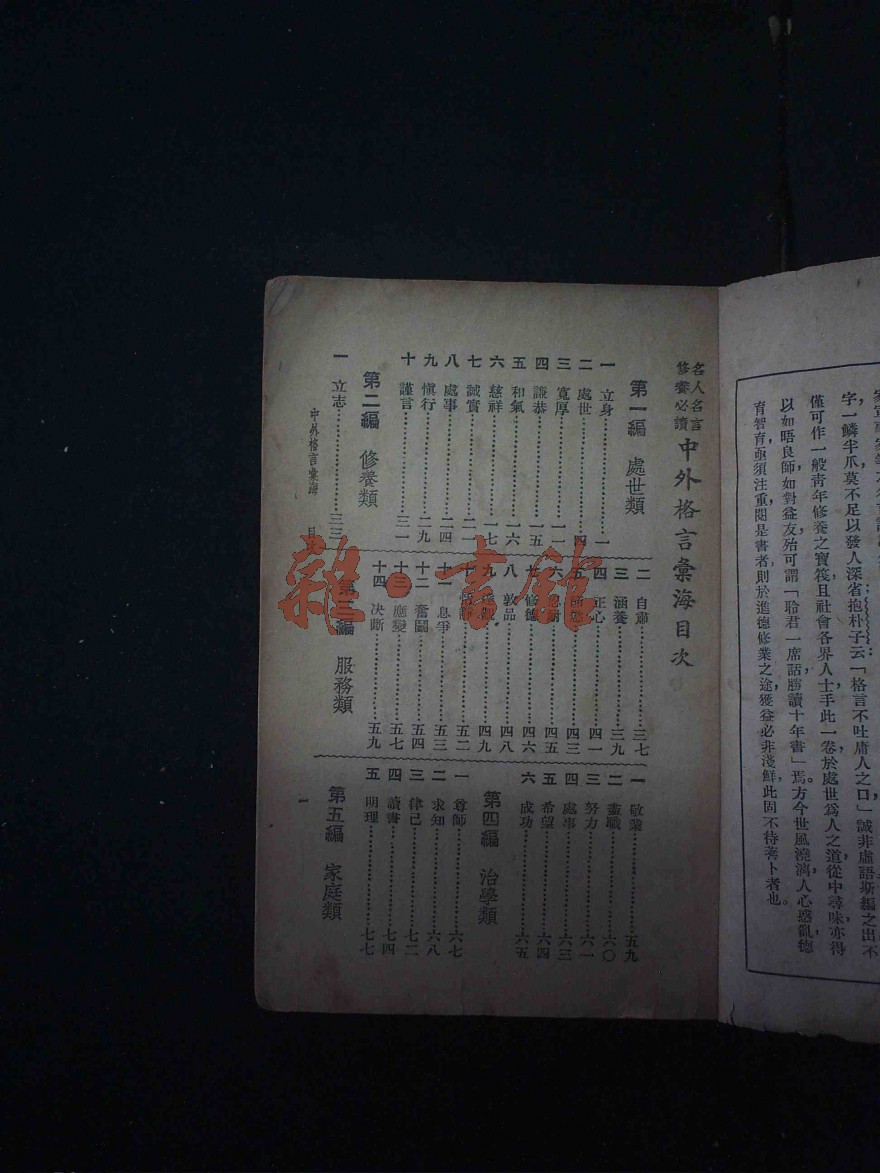 字，一鱗半爪，莫不足以發人深省，抱朴子云「格言不吐庸人之口」誠非虛語，斯編之出，不
僅可作一般靑年修養之寶筏，且社會各界人士，手此一卷，於處世爲人之道，從中尋味，亦得
以如晤良師，如對益友，殆可謂「聆君一席話，勝讀十年書」焉。方今世風澆漓，人心惑亂，德
育智育，亟須注重，閱是書者，則於進德修業之途，獲益必非淺鮮，此固不待蓍卜者也。
名人名言
修養必讀
中外格言彙海目次
第一編　處世類
一　立身……一
二　處世……四
三　寬厚……一一
四　謙恭……一五
五　和氣……一六
六　慈祥……一七
七　誠實……二一
八　處事……二四
九　愼行……二九
十　謹言……三一
第二編　修養類
一　立志……三三
二　自肅……三七
三　涵養……三九
四　正心……四一
五……四三
六　忍耐……四五
七　修德……四六
八　敦品……四八
九……四九
十……五二
十一　息爭……五三
十二　奮鬭……五四
十三　應變……五七
十四　決斷……五九
第三編　服務類
一　敬業……五九
二　盡職……六〇
三　努力……六一
四　處事……六三
五　希望……六四
六　成功……六五
第四編　治學類
一　尊師……六七
二　求知……六八
三　律己……七二
四　讀書……七四
五　明理……七七
第五編　家庭類
中外格言彙海　目次
一
雜·書館